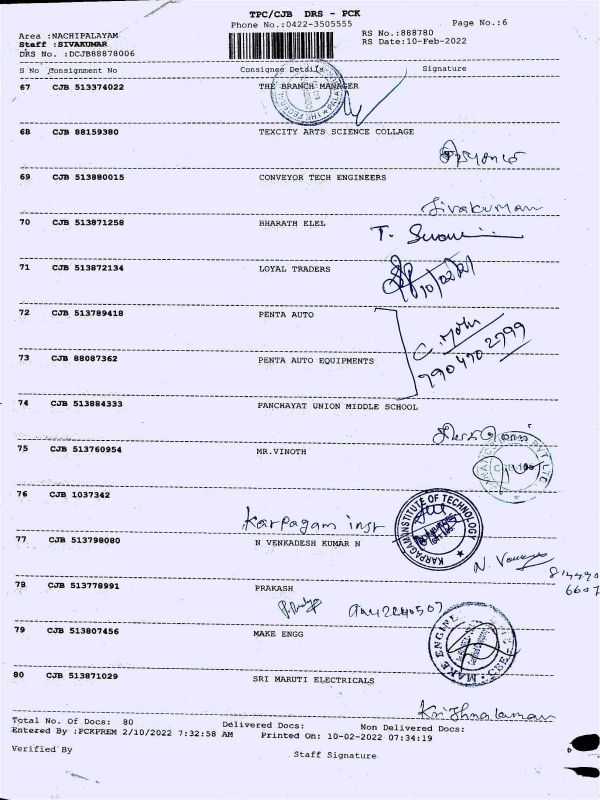 TPC/CJB DRS - PCK
Phone No.:0422-3505555
Page No.:6
Area :NACHIPALAYAM
Staff :SIVAKUMAR
DRS No. :DCJB88878006
RS No.:888780
RS Date:10-Feb-2022
S No Consignment No Consignee Details Signature
67 CJB 513374022 THE BRANCH MANAGER
68 CJB 88159380 TEXCITY ARTS SCIENCE COLLAGE
69 CJB 513880015 CONVEYOR TECH ENGINEERS
Sivakumar
70 CJB 513871258 BHARATH ELEL
71 CJB 513872134 LOYAL TRADERS
10/02/21
72 CJB 513789418 PENTA AUTO
C. John
73 CJB 88087362 PENTA AUTO EQUIPMENTS
790470 2799
74 CJB 513884333 PANCHAYAT UNION MIDDLE SCHOOL
75 CJB 513760954 MR.VINOTH
76 CJB 1037342
Karpagam inst
KARPAGAM INSTITUTE OF TECHNOLOGY
77 CJB 513798080 N VENKADESH KUMAR N
78 CJB 513778991 PRAKASH
79 CJB 513807456 MAKE ENGG
MAKE ENGINE
80 CJB 513871029 SRI MARUTI ELECTRICALS
Total No. Of Docs: 80 Delivered Docs: Non Delivered Docs:
Entered By :PCKPREM 2/10/2022 7:32:58 AM Printed On: 10-02-2022 07:34:19
Verified By
Staff Signature